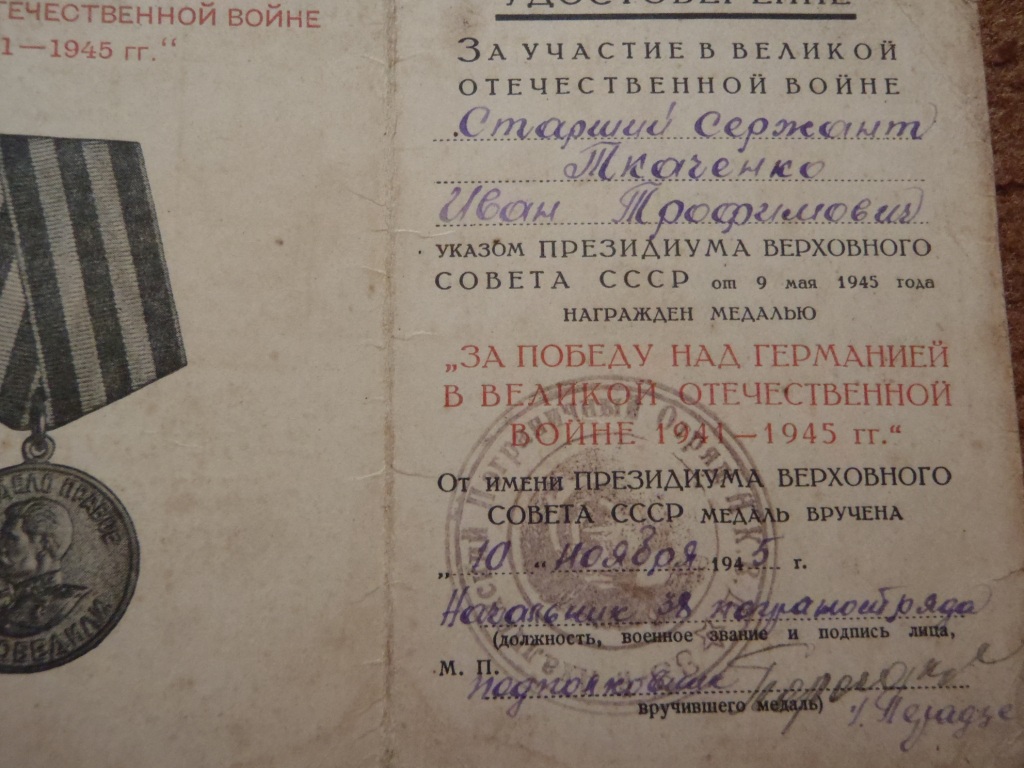 ТЕЧЕСТВЕННОЙ ВОЙНЕ
1—1945 гг."
ДЕЛО ПРАВОЕ
ПОБЕДИЛИ
УДОСТОВЕРЕНИЕ
ЗА УЧАСТИЕ В ВЕЛИКОЙ
ОТЕЧЕСТВЕННОЙ ВОЙНЕ
Старший сержант
Ткаченко
Иван Трофимович
УКАЗОМ ПРЕЗИДИУМА ВЕРХОВНОГО
СОВЕТА СССР от 9 мая 1945 года
НАГРАЖДЕН МЕДАЛЬЮ
„ЗА ПОБЕДУ НАД ГЕРМАНИЕЙ
В ВЕЛИКОЙ ОТЕЧЕСТВЕННОЙ
ВОЙНЕ 1941—1945 гг."
От имени ПРЕЗИДИУМА ВЕРХОВНОГО
СОВЕТА СССР МЕДАЛЬ ВРУЧЕНА
„10" ноября 1945 г.
Начальник 38 погранотряда
(должность, военное звание и подпись лица,
М. П.
подполковник
вручившего медаль)
Пограничный Отряд